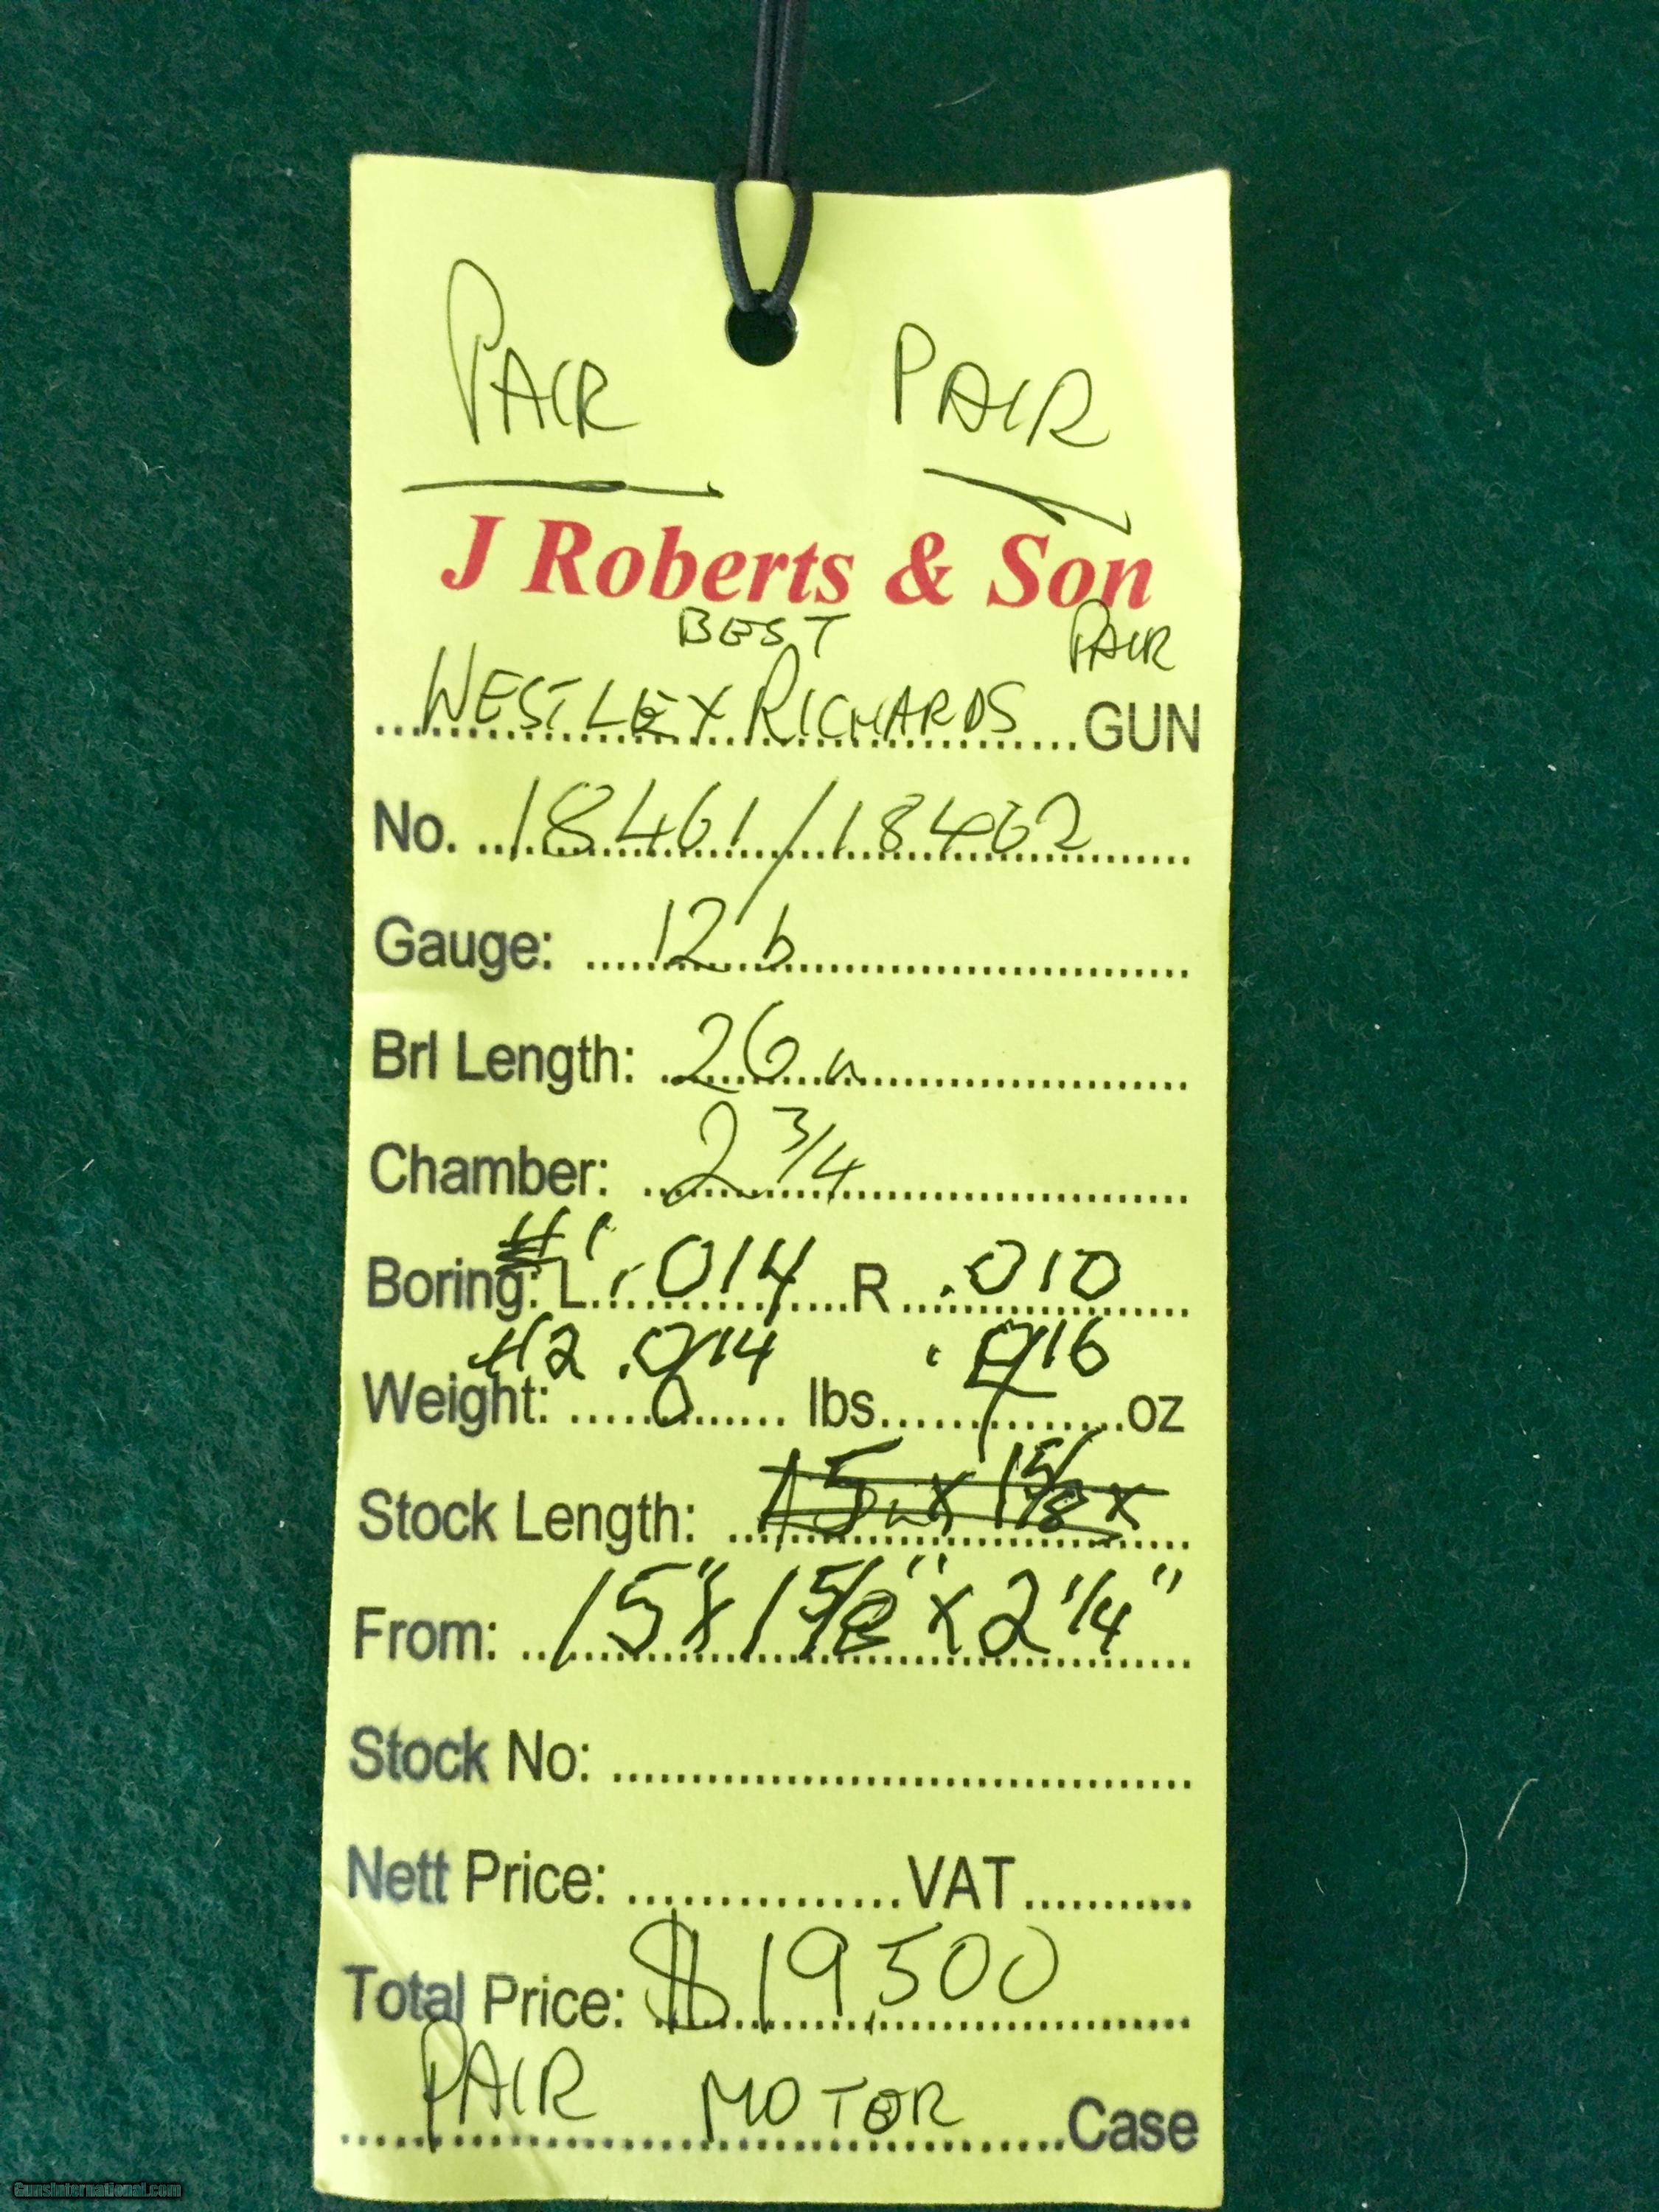 PAIR PAIR
J Roberts & Son
BEST PAIR
WESTLEY RICHARDS GUN
No. 18461/18462
Gauge: 12 b
Brl Length: 26 in
Chamber: 2 3/4
#1
Boring: L .014 R .010
#2 .014 .016
Weight: 6 lbs 7 oz
Stock Length: 15 in x 1 5/8 x
From: 15" x 1 5/8" x 2 1/4"
Stock No:
Nett Price: VAT
Total Price: $19,500
PAIR MOTOR Case
GunsInternational.com